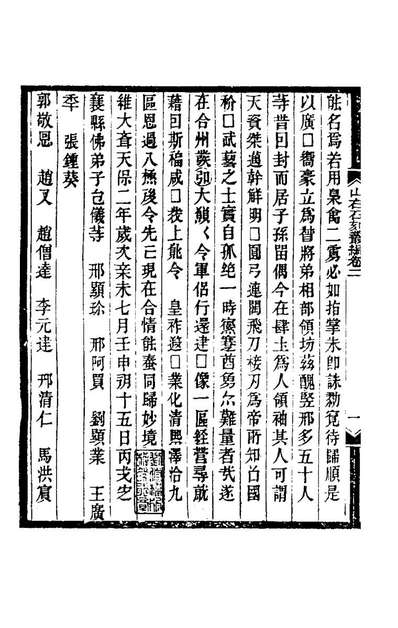 能名爲若用臬禽二寡必如指掌朱卽誅勦寇待歸順是
以廣□衙豪立爲督將弟相部領坊兹醜竪邢多五十人
等昔囙封而居子孫留偶今在肆土爲人領袖其人可謂
天資桀邁幹解明□圓弓連閒飛刀接刀爲帝所知台國
粉□武藝之士實自孤绝一時蠻酋勇亦難量者哉遂
在合州羙卯大願く令軍侶行還建□像一區經营尋就
藉囙斯福咸□薐上能令 皇祚遐□業化清熙澤洽九
區恩過八極後令先亡現在合情能蚕同歸妙境
維大䓁天保二年歲次辛未七月壬申朔十五日丙戌定
襄縣佛弟子包儀等 邢顯珎 邢阿買 劉顯業 王廣
秊 張鍾葵
郭敬恩 趙叉 趙僧達 李元達 邢清仁 馬洪賔
山右石刻叢編卷二
一